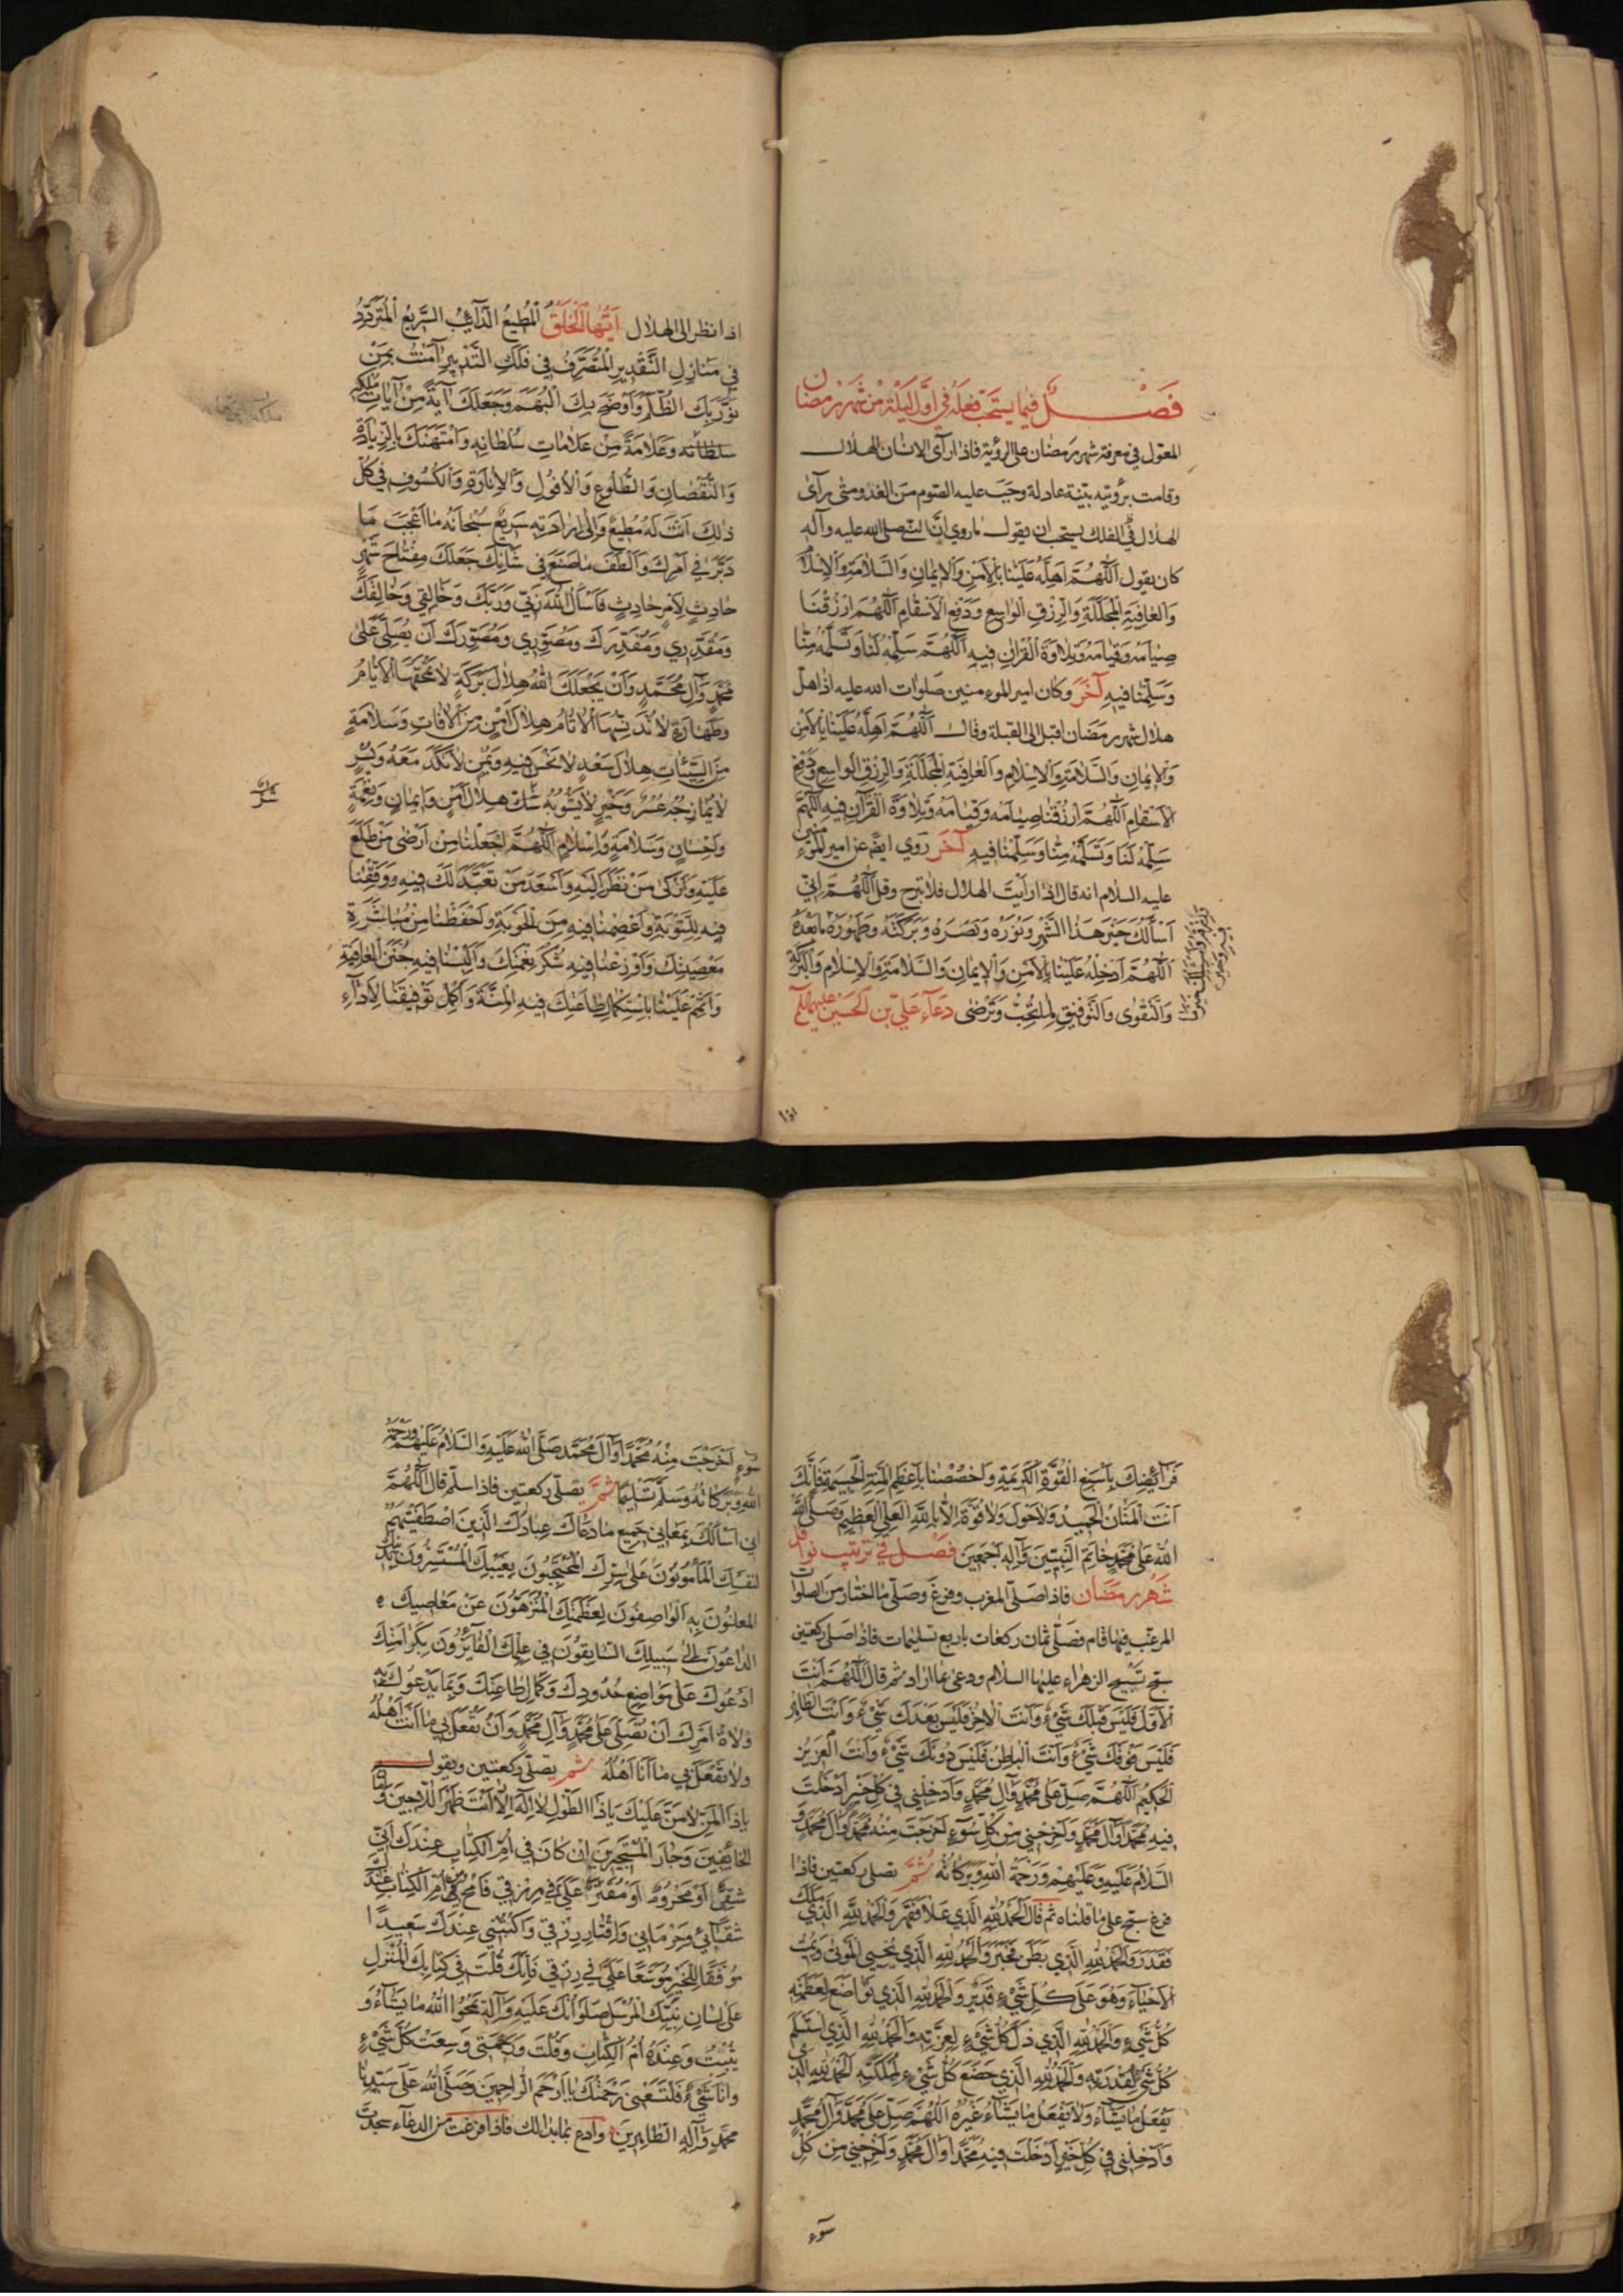 فَصْلٌ فيما يستحَبّ فِعلُهُ في اوَّلِ لَيْلَةٍ مِنْ شَهْرِ رَمَضان
المعَوّل في معرفة شهر رمَضان على الرؤية فاذا رآى الانسان الهلال
وقامت برؤيته بيّنة عادلة وجَبَ عليه الصّوم من الغد ومتى رآى
الهلال في الفلك يستحب ان يقول ما روي انّ النبي صلى الله عليه وآله
كان يقول اَللّهُمَّ اَهِلَّهُ عَلَيْنا بِالاَمْنِ وَالايمٰانِ وَالسَّلامَةِ وَالاِسْلامِ
وَالعافِيَةِ المُجَلَّلَةِ وَالرِّزْقِ الواسِعِ وَدَفْعِ الاَسْقامِ اَللّهُمَّ ارْزُقْنا
صِيامَهُ وَقِيامَهُ وَتِلاوَةَ الْقُرْانِ فيهِ اَللّهُمَّ سَلِّمْهُ لَنا وَتَسَلَّمْهُ مِنّا
وَسَلِّمْنا فيهِ آخَرُ وكان امير المومنين صلوات الله عليه اذا اهلّ
هلال شهر رمَضان اقبل الى القبلة وقال اَللّهُمَّ اَهِلَّهُ عَلَيْنا بِالاَمْنِ
وَالايمانِ وَالسَّلامَةِ وَالاِسْلامِ وَالعافِيَةِ المُجَلَّلَةِ وَالرِّزْقِ الواسِعِ وَدَفْعِ
الاَسْقامِ اَللّهُمَّ ارْزُقْنا صِيامَهُ وَقِيامَهُ وَتِلاوَةَ الْقُرْآنِ فيهِ اَللّهُمَّ
سَلِّمْهُ لَنا وَتَسَلَّمْهُ مِنّا وَسَلِّمْنا فيهِ آخَر روي ايضا عن امير المومنين
عليه السلام انه قال اذا رايت الهلال فلا تبرح وقل اَللّهُمَّ اِنّي
اَسْأَلُكَ خَيْرَ هٰذَا الشَّهْرِ وَنُورَهُ وَنَصْرَهُ وَبَرَكَتَهُ وَطَهُورَهُ مابَعْدَهُ
اَللّهُمَّ اَدْخِلْهُ عَلَيْنا بِالاَمْنِ وَالايمانِ وَالسَّلامَةِ وَالاِسْلامِ وَالبَرَكَةِ
وَالتَّقْوى وَالتَّوْفيقِ لِما تُحِبُّ وَتَرْضى دعاء علي بن الحسين عليهما السلم
اذا
اذا نظر الى الهلال اَيُّهَا الْخَلْقُ الْمُطيعُ الدّآئِبُ السَّريعُ الْمُتَرَدِّدُ
في مَنازِلِ التَّقْديرِ الْمُتَصَرِّفُ في فَلَكِ التَّدْبيرِ آمَنْتُ بِمَنْ
نَوَّرَ بِكَ الظُّلَمَ وَاَوْضَحَ بِكَ الْبُهَمَ وَجَعَلَكَ آيَةً مِنْ آياتِ مُلْكِهِ
سلطانه وَعَلامَةً مِنْ عَلاماتِ سُلْطانِهِ وَامْتَهَنَكَ بِالزِّيادَةِ
وَالنُّقْصانِ وَالطُّلُوعِ وَالاُفُولِ وَالاِنارَةِ وَالْكُسُوفِ في كُلِّ
ذلِكَ اَنْتَ لَهُ مُطيعٌ وَاِلى اِرادَتِهِ سَريعٌ سُبْحانَهُ ما اَعْجَبَ مَا
دَبَّرَ في اَمْرِكَ وَاَلْطَفَ ما صَنَعَ في شَاْنِكَ جَعَلَكَ مِفْتاحَ شَهْرٍ
حادِثٍ لِاَمْرٍ حادِثٍ فَاَسْاَلُ اللهَ رَبّي وَرَبَّكَ وَخالِقي وَخالِقَكَ
وَمُقَدِّري وَمُقَدِّرَكَ وَمُصَوِّري وَمُصَوِّرَكَ اَنْ يُصَلِّيَ عَلى
مُحَمَّدٍ وَآلِ مُحَمَّدٍ وَاَنْ يَجْعَلَكَ اللهُ هِلالَ بَرَكَةٍ لا تَمْحَقُهَا الاَيّامُ
وَطَهارَةٍ لا تُدَنِّسُهَا الاثامُ هِلالَ اَمْنٍ مِنَ الافاتِ وَسَلامَةٍ
مِنَ السَّيِّئاتِ هِلالَ سَعْدٍ لا نَحْسَ فيهِ وَيُمْنٍ لا نَكَدَ مَعَهُ وَيُسْرٍ
لا يُمازِجُهُ عُسْرٌ وَخَيْرٍ لا يَشُوبُهُ شَكّ هِلالَ اَمْنٍ وَايمانٍ وَنِعْمَةٍ
وَاِحْسانٍ وَسَلامَةٍ وَاِسْلامٍ اَللّهُمَّ اجْعَلْنا مِنْ اَرْضى مَنْ طَلَعَ
عَلَيْهِ وَاَزْكى مَنْ نَظَرَ اِلَيْهِ وَاَسْعَدَ مَنْ تَعَبَّدَ لَكَ فيهِ وَوَفِّقْنا
فيهِ لِلتَّوْبَةِ وَاعْصِمْنا فيهِ مِنَ الْحَوْبَةِ وَاحْفَظْنا مِنْ مُباشَرَةِ
مَعْصِيَتِكَ وَاَوْزِعْنا فيهِ شُكْرَ نِعْمَتِكَ وَاَلْبِسْنا فيهِ جُنَنَ الْعافِيَةِ
وَاَتْمِمْ عَلَيْنا بِاسْتِكْمالِ طاعَتِكَ فيهِ الْمِنَّةَ وَاَكْمِلْ تَوْفيقَنا لِاَدآءِ
فَرآئِضِكَ بِاَسْبَغِ الْقُوَّةِ الْكَريمَةِ وَاخْصُصْنا بِاَعْظَمِ الْمِنَنِ الْجَسيمَةِ فَاِنَّكَ
اَنْتَ الْمَنّانُ الْحَميدُ وَلا حَوْلَ وَلا قُوَّةَ اِلّا بِاللهِ الْعَلِيِّ الْعَظيمِ وَصَلَّى اللهُ
اللهُ عَلى مُحَمَّدٍ خاتَمِ النَّبِيّينَ وَآلِهِ اَجْمَعينَ فَصْلٌ في ترتيب نوافل
شَهْرِ رمَضان فاذا صَلّى المغرب وفرغ وصَلّى ما اختار من الصلوات
المرغّب فيها قام فصَلّى ثمان ركعات باربع تسليمات فاذا صلى ركعتين
سبّح تسبيح الزهراء عليها السلام ودعى بما اراد ثم قال اَللّهُمَّ اَنْتَ
الْاَوَّلُ فَلَيْسَ قَبْلَكَ شَيْءٌ وَاَنْتَ الْاخِرُ فَلَيْسَ بَعْدَكَ شَيْءٌ وَاَنْتَ الظّاهِرُ
فَلَيْسَ فَوْقَكَ شَيْءٌ وَاَنْتَ الْباطِنُ فَلَيْسَ دُونَكَ شَيْءٌ وَاَنْتَ الْعَزيزُ
الْحَكيمُ اَللّهُمَّ صَلِّ عَلى مُحَمَّدٍ وَآلِ مُحَمَّدٍ وَاَدْخِلْني في كُلِّ خَيْرٍ اَدْخَلْتَ
فيهِ مُحَمَّدًا وَآلَ مُحَمَّدٍ وَاَخْرِجْني مِنْ كُلِّ سُوءٍ اَخْرَجْتَ مِنْهُ مُحَمَّدًا وَآلَ مُحَمَّدٍ وَ
السَّلامُ عَلَيْهِ وَعَلَيْهِمْ وَرَحْمَةُ اللهِ وَبَرَكاتُهُ ثُمَّ تصلى ركعتين فاذا
فرغ سبّح على ما قلناه ثم قال اَلْحَمْدُ لِلّهِ الَّذي عَلا فَقَهَرَ وَالْحَمْدُ لِلّهِ الَّذي مَلَكَ
فَقَدَرَ وَالْحَمْدُ لِلّهِ الَّذي بَطَنَ فَخَبَرَ وَالْحَمْدُ لِلّهِ الَّذي يُحْيِي الْمَوْتى وَيُميتُ
الْاَحْيآءَ وَهُوَ عَلى كُلِّ شَيْءٍ قَديرٌ وَالْحَمْدُ لِلّهِ الَّذي تَواضَعَ لِعَظَمَتِهِ
كُلُّ شَيْءٍ وَالْحَمْدُ لِلّهِ الَّذي ذَلَّ كُلُّ شَيْءٍ لِعِزَّتِهِ وَالْحَمْدُ لِلّهِ الَّذي اسْتَسْلَمَ
كُلُّ شَيْءٍ لِقُدْرَتِهِ وَالْحَمْدُ لِلّهِ الَّذي خَضَعَ كُلُّ شَيْءٍ لِمَلَكَتِهِ اَلْحَمْدُ لِلّهِ الَّذي
يَفْعَلُ ما يَشآءُ وَلا يَفْعَلُ ما يَشآءُ غَيْرُهُ اَللّهُمَّ صَلِّ عَلى مُحَمَّدٍ وَآلِ مُحَمَّدٍ
وَاَدْخِلْني في كُلِّ خَيْرٍ اَدْخَلْتَ فيهِ مُحَمَّدًا وَآلَ مُحَمَّدٍ وَاَخْرِجْني مِنْ كُلِّ
سُوءٍ
سُوءٍ اَخْرَجْتَ مِنْهُ مُحَمَّدًا وَآلَ مُحَمَّدٍ صَلَّى اللهُ عَلَيْهِ وَالسَّلامُ عَلَيْهِمْ وَرَحْمَةُ
اللهِ وَبَرَكاتُهُ وَسَلَّمَ تَسْليمًا ثُمَّ يصلّى ركعتين فاذا سلّم قال اَللّهُمَّ
اِنّي اَسْاَلُكَ بِمَعاني جَميعِ ما دَعاكَ عِبادُكَ الَّذينَ اصْطَفَيْتَهُمْ
لِنَفْسِكَ الْمَأْمُونُونَ عَلى سِرِّكَ الْمُحْتَجِبُونَ بِغَيْبِكَ الْمُسْتَسِرُّونَ بِدينِكَ
الْمُعْلِنُونَ بِهِ الْواصِفُونَ لِعَظَمَتِكَ الْمُنَزَّهُونَ عَنْ مَعاصيكَ
الدّاعُونَ اِلى سَبيلِكَ السّابِقُونَ في عِلْمِكَ الْفآئِزُونَ بِكَرامَتِكَ
اَدْعُوكَ عَلى مَواضِعِ حُدُودِكَ وَكَمالِ طاعَتِكَ وَبِما يَدْعُوكَ بِهِ
وُلاةُ اَمْرِكَ اَنْ تُصَلِّيَ عَلى مُحَمَّدٍ وَآلِ مُحَمَّدٍ وَاَنْ تَفْعَلَ بي ما اَنْتَ اَهْلُهُ
وَلا تَفْعَلْ بي ما اَنَا اَهْلُهُ ثم يصلّى ركعتين ويقول
ياذَا الْمَنِّ لا مَنَّ عَلَيْكَ ياذَا الطَّوْلِ لا اِلهَ اِلّا اَنْتَ ظَهْرَ اللّاجينَ وَمَأْمَنَ
الْخآئِفينَ وَجارَ الْمُسْتَجيرينَ اِنْ كانَ في اُمِّ الْكِتابِ عِنْدَكَ اَنّي
شَقِيٌّ اَوْ مَحْرُومٌ اَوْ مُقَتَّرٌ عَلَيَّ في رِزْقي فَامْحُ مِنْ اُمِّ الْكِتابِ
شَقآئي وَحِرْماني وَاِقْتارَ رِزْقي وَاكْتُبْني عِنْدَكَ سَعيدًا
مُوَفَّقًا لِلْخَيْرِ مُوَسَّعًا عَلَيَّ في رِزْقي فَاِنَّكَ قُلْتَ في كِتابِكَ الْمُنْزَلِ
عَلى لِسانِ نَبِيِّكَ الْمُرْسَلِ صَلَواتُكَ عَلَيْهِ وَآلِهِ يَمْحُوا اللهُ ما يَشآءُ وَ
يُثْبِتُ وَعِنْدَهُ اُمُّ الْكِتابِ وَقُلْتَ وَرَحْمَتي وَسِعَتْ كُلَّ شَيْءٍ
وَاَنَا شَيْءٌ فَلْتَسَعْني رَحْمَتُكَ يا اَرْحَمَ الرّاحِمينَ وَصَلَّى اللهُ عَلى سَيِّدِنا
مُحَمَّدٍ وَآلِهِ الطّاهِرينَ وادع بما بدا لك فاذا فرغت من الدعاء سجدت